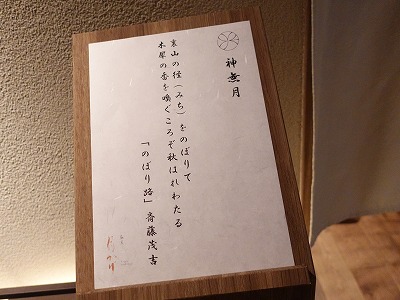 神無月
裏山の径(みち)をのぼりて
木犀の香を嗅ぐころぞ秋はれわたる
「のぼり路」斎藤茂吉